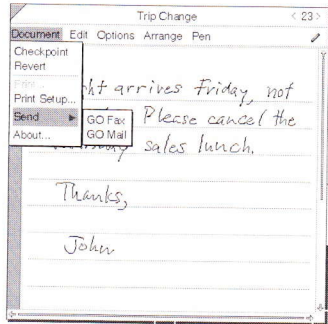 Trip Change < 23 >
Document Edit Options Arrange Pen
Checkpoint
Revert
Print...
Print Setup...
Send
About...
GO Fax
GO Mail
arrives Friday, not
Please cancel the
sales lunch.
Thanks,
John